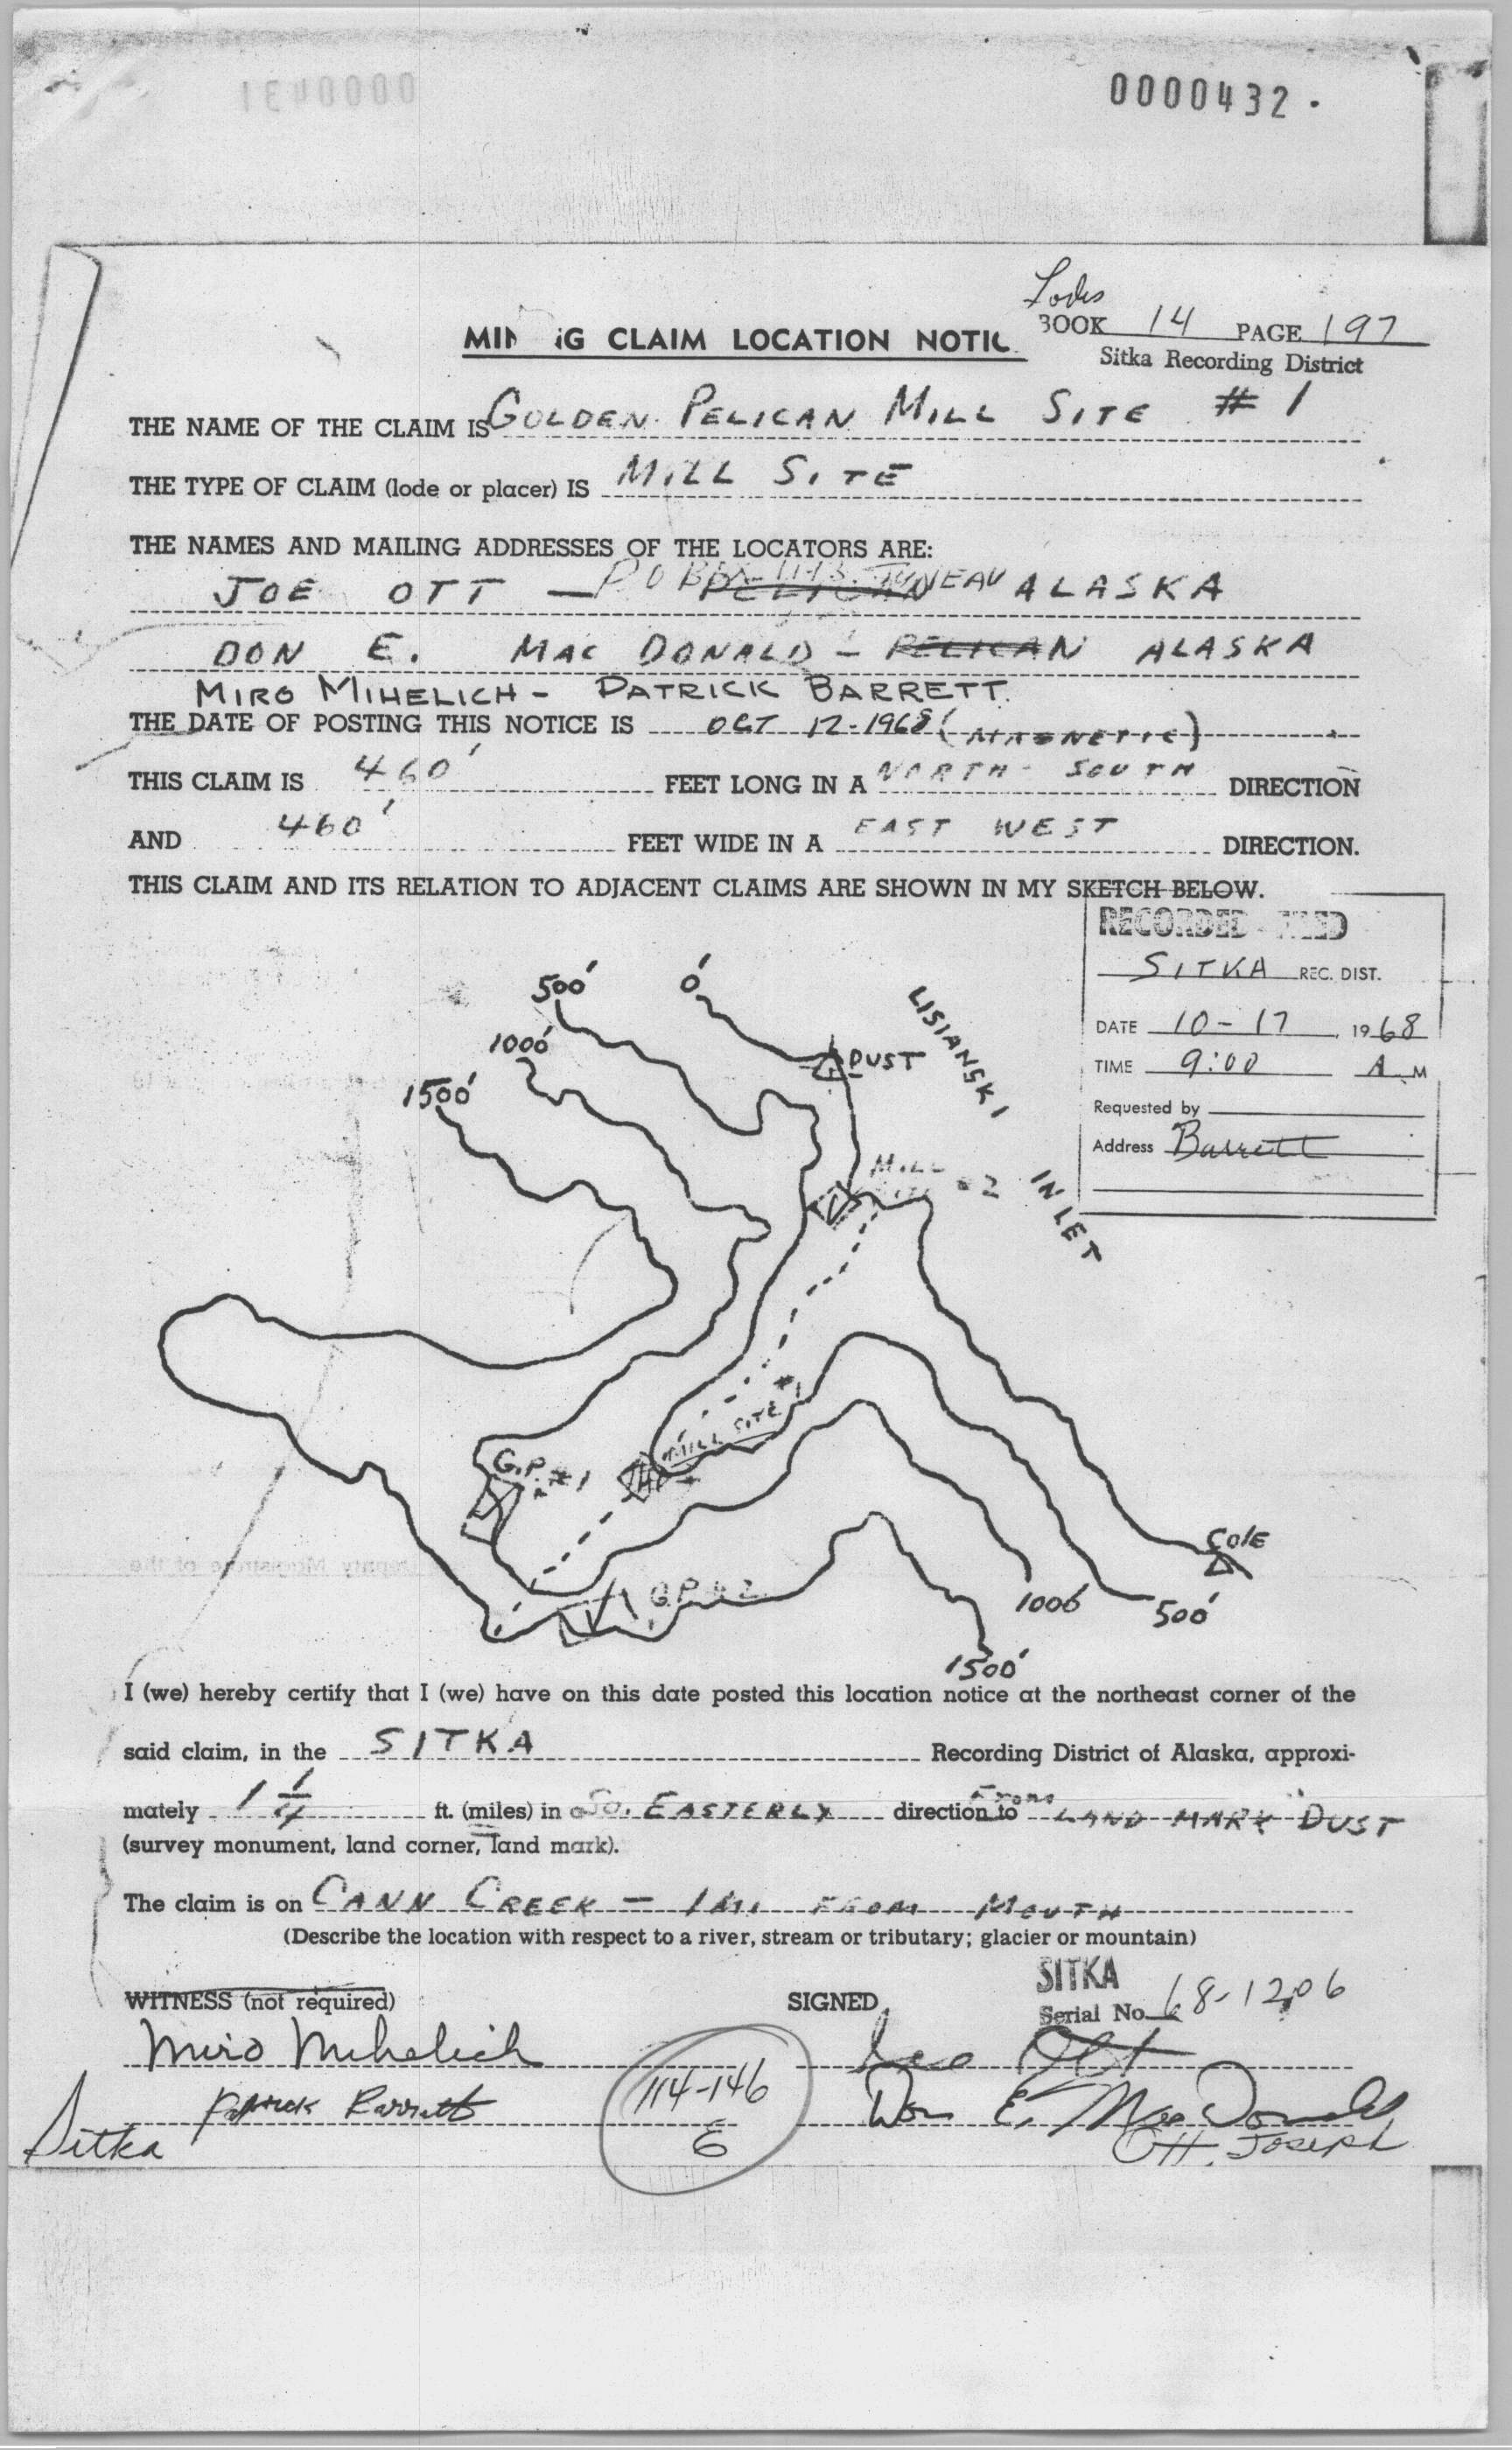 0000431
0000432
Lodes
BOOK 14 PAGE 197
MINING CLAIM LOCATION NOTIC
Sitka Recording District
THE NAME OF THE CLAIM IS GOLDEN PELICAN MILL SITE # 1
THE TYPE OF CLAIM (lode or placer) IS MILL SITE
THE NAMES AND MAILING ADDRESSES OF THE LOCATORS ARE:
JOE OTT — P O BOX PELICAN JUNEAU ALASKA
DON E. MAC DONALD - PELICAN ALASKA
MIRO MIHELICH - PATRICK BARRETT.
THE DATE OF POSTING THIS NOTICE IS OCT 12-1968 (MAGNETIC)
THIS CLAIM IS 460' FEET LONG IN A NORTH-SOUTH DIRECTION
AND 460' FEET WIDE IN A EAST WEST DIRECTION.
THIS CLAIM AND ITS RELATION TO ADJACENT CLAIMS ARE SHOWN IN MY SKETCH BELOW.
RECORDED - FILED
SITKA REC. DIST.
DATE 10-17 1968
TIME 9:00 A M
Requested by
Address Barrett
500'
0'
1000'
1500'
DUST
LISIANSKI
INLET
MILL
SITE #2
MILL SITE #1
G.P. #1
G.P. #2
COLE
1000'
500'
1500'
I (we) hereby certify that I (we) have on this date posted this location notice at the northeast corner of the
said claim, in the SITKA Recording District of Alaska, approxi-
mately 1 1/4 ft. (miles) in a So. EASTERLY direction to From LAND MARK "DUST
(survey monument, land corner, land mark).
The claim is on CANN CREEK - 1 MI. FROM MOUTH
(Describe the location with respect to a river, stream or tributary; glacier or mountain)
WITNESS (not required)
SIGNED
SITKA
Serial No. 68-1206
Miro Mihelich
Joe Ott
Patrick Barrett
Don E. MacDonald
114-146
6
Sitka
Ott, Joseph